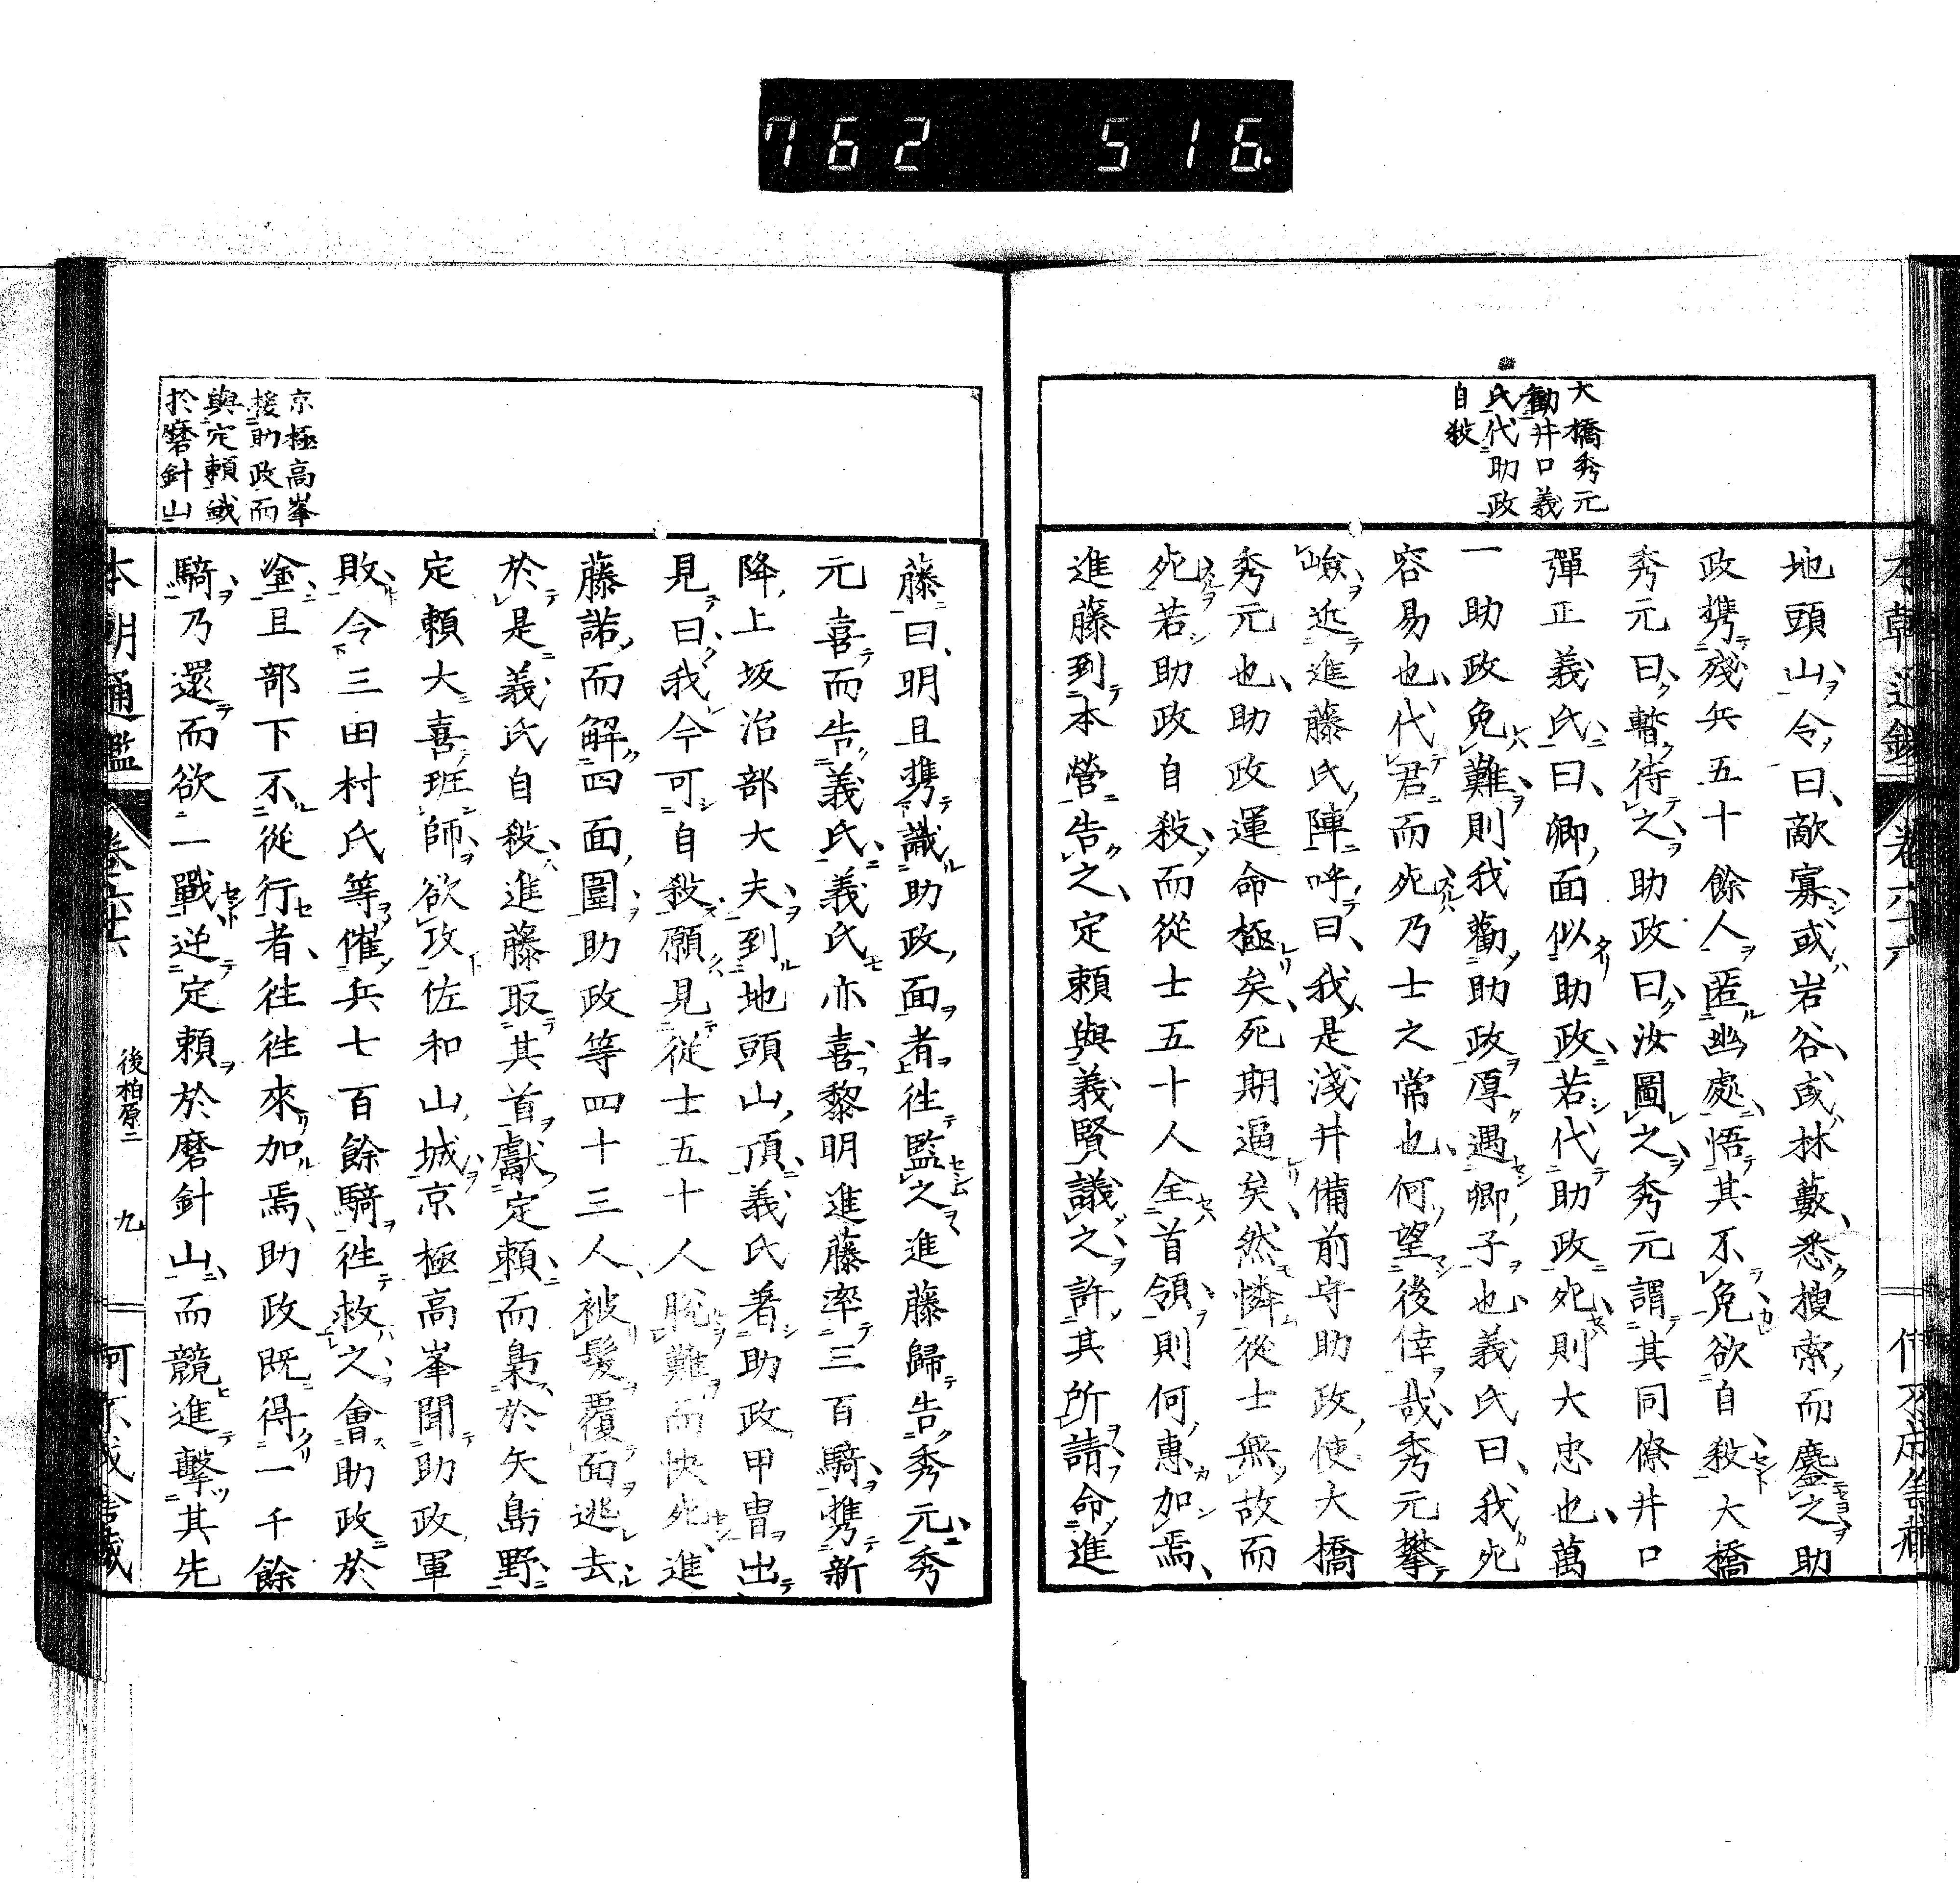 762 516.
大橋秀元
勸井口義
氏代助政
自殺
地頭山令曰敵寡或岩谷或林藪悉搜索而鏖之助
政携殘兵五十餘人匿幽處悟其不免欲自殺大橋
秀元曰暫待之助政曰汝圖之秀元謂其同僚井口
彈正義氏曰卿面似助政若代助政死則大忠也萬
一助政免難則我勸助政厚遇卿子也義氏曰我死
容易也代君而死乃士之常也何望後倖哉秀元攀
嶮近進藤氏陣呼曰我是淺井備前守助政使大橋
秀元也助政運命極矣死期逼矣然憐從士無故而
死若助政自殺而從士五十人全首領則何惠加焉
進藤到本營告之定賴與義賢議之許其所請命進
藤曰明旦携識助政面者往監之進藤歸告秀元秀
元喜而告義氏義氏亦喜黎明進藤率三百騎携新
降上坂治部大夫到地頭山頂義氏著助政甲冑出
見曰我今可自殺願見從士五十人脫難而快死進
藤諾而解四面圍助政等四十三人被髮覆面逃去
於是義氏自殺進藤取其首獻定賴而梟於矢島野
定賴大喜班師欲攻佐和山城京極高峯聞助政軍
敗今三田村氏等催兵七百餘騎往救之會助政於
塗且部下不從行者往往來加焉助政既得一千餘
騎乃還而欲一戰逆定賴於磨針山而競進擊其先
京極高峯
援助政而
與定賴戰
於磨針山
本朝通鑑 卷六十六 後柏原二 九